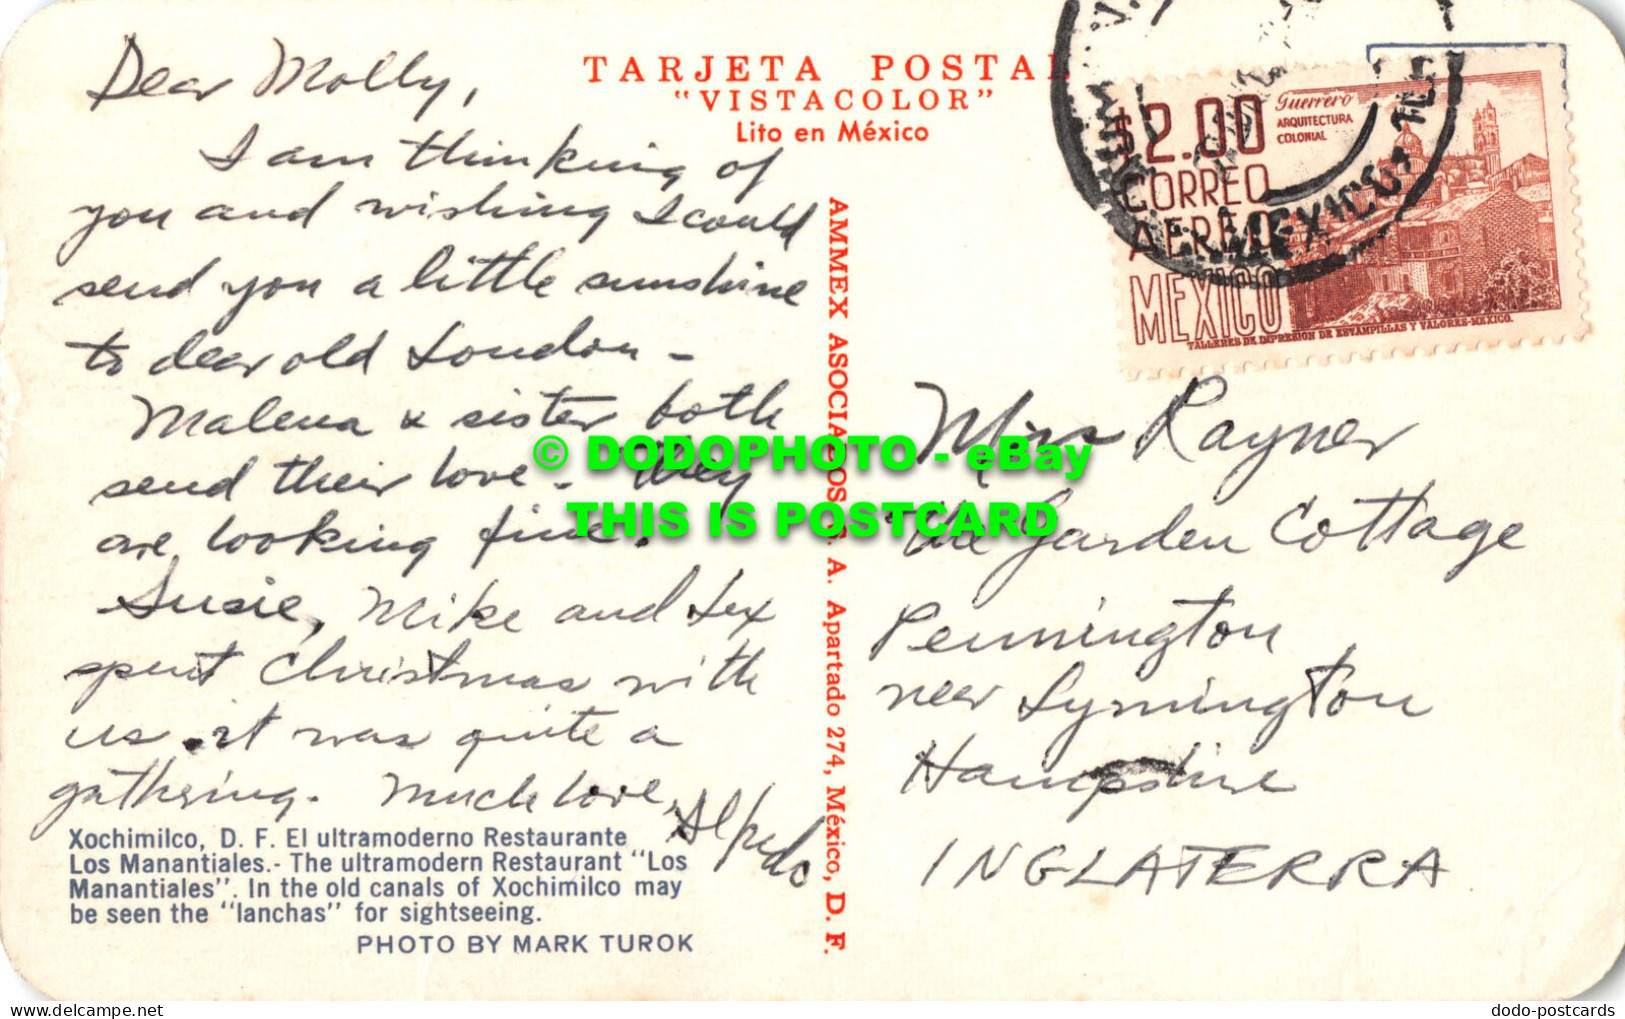 Dear Molly,
I am thinking of
you and wishing I could
send you a little sunshine
to dear old London -
Malena & sister both
send their love - They
are looking fine.
Susie, Mike and Lex
spent Christmas with
us. it was quite a
gathering. Much love,
Alfredo
Xochimilco, D. F. El ultramoderno Restaurante
Los Manantiales.- The ultramodern Restaurant "Los
Manantiales". In the old canals of Xochimilco may
be seen the "lanchas" for sightseeing.
PHOTO BY MARK TUROK
TARJETA POSTAL
"VISTACOLOR"
Lito en México
AMMEX ASOCIADOS, S. A. Apartado 274, México, D. F.
$2.00
CORREO
AEREO
MEXICO
Guerrero
ARQUITECTURA
COLONIAL
TALLERES DE IMPRESION DE ESTAMPILLAS Y VALORES-MEXICO.
MEXICO
Mrs Rayner
The Garden Cottage
Pennington
near Lymington
Hampshire
INGLATERRA
© DODOPHOTO - eBay
THIS IS POSTCARD
dodo-postcards